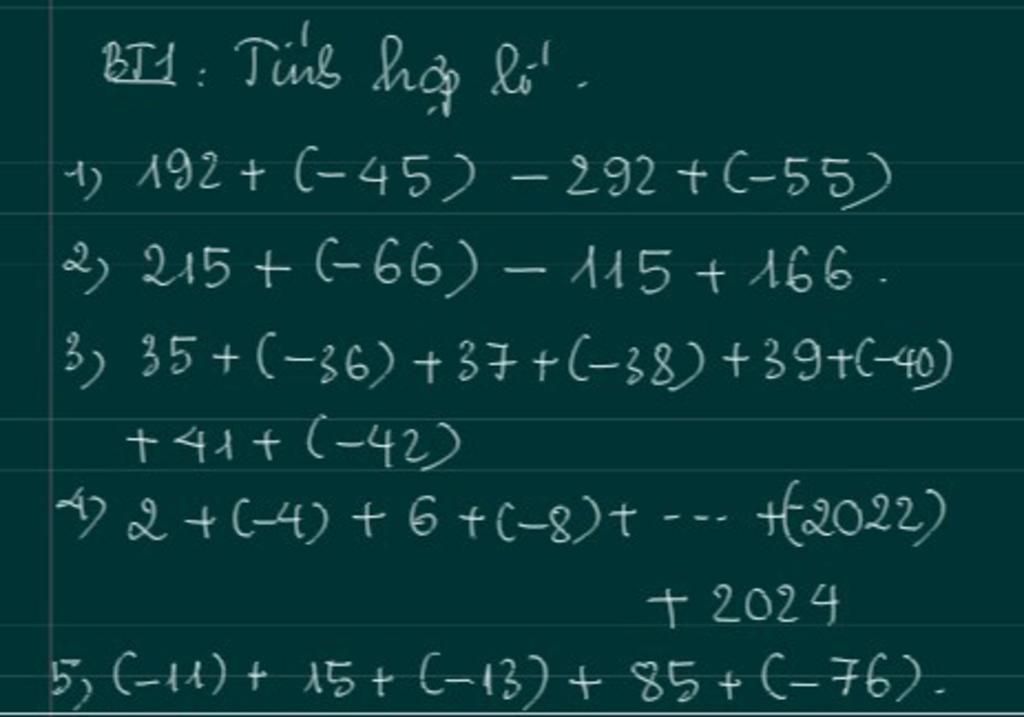 BT1: Tính hợp lí.
1) 192 + (-45) - 292 + (-55)
2) 215 + (-66) - 115 + 166.
3) 35 + (-36) + 37 + (-38) + 39 + (-40)
+ 41 + (-42)
4) 2 + (-4) + 6 + (-8) + --- + (-2022)
+ 2024
5, (-11) + 15 + (-13) + 85 + (-76).